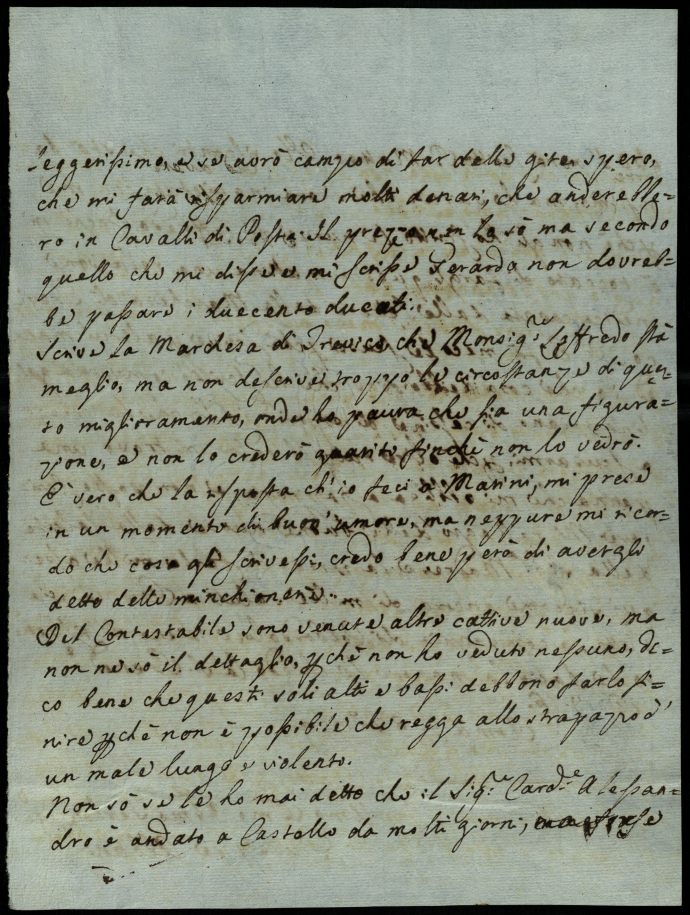 leggerissimo, e se avrò campo di far delle gite, spero,
che mi farà risparmiare molti denari, che anderebbe=
ro in Cavalli di Posta. Il prezzo non lo sò ma secondo
quello che mi disse e mi scrisse Gerarda non dovreb=
be passare i duecento ducati.
Scrive la Marchesa di Trevico che Monsig.re Loffredo stà
meglio, ma non descrive troppo le circostanze di ques=
to miglioramento, onde ho paura che sia una figura=
zione, e non lo crederò guarito finchè non lo vedrò.
E' vero che la risposta ch'io feci a Marini, mi prese
in un momento di buon'umore, ma neppure mi ricor=
do che cosa gli scrivessi, credo bene però di avergli
detto delle minchionerie.
Del Contestabile sono venute altre cattive nuove, ma
non ne sò il dettaglio, pchè non ho veduto nessuno, di=
co bene che questi soli alti e bassi debbono farlo fi=
nire pchè non è possibile che regga allo strapazzo d'
un male lungo e violento.
Non sò se le ho mai detto che il Sig.re Card.le Alessan=
dro è andato a Castello da molti giorni,